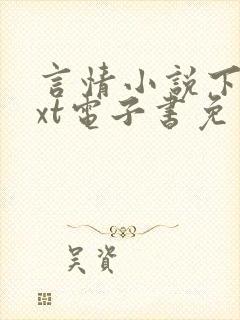 言情小說下
xt電子書免
吴資